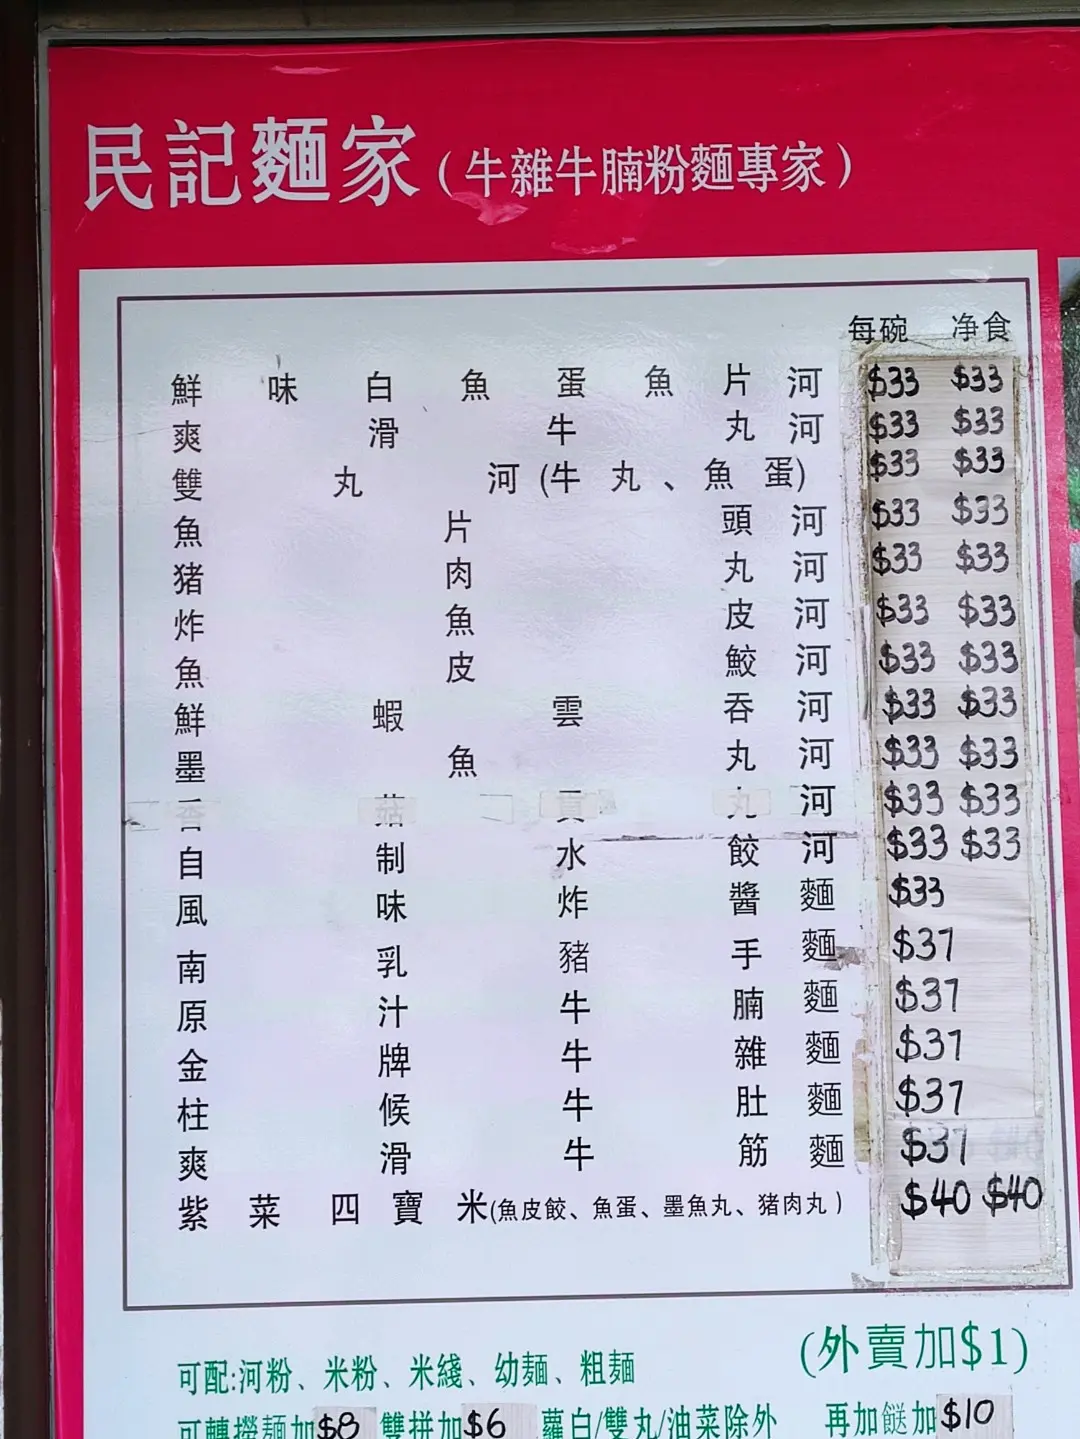 民記麵家(牛雜牛腩粉麵專家)
每碗 净食
鮮味白魚蛋魚片河 $33 $33
爽滑牛丸河 $33 $33
雙丸河(牛丸、魚蛋) $33 $33
魚片頭河 $33 $33
猪肉丸河 $33 $33
炸魚皮河 $33 $33
魚皮鮫河 $33 $33
鮮蝦雲吞河 $33 $33
墨魚丸河 $33 $33
香菇貢丸河 $33 $33
自制水餃河 $33 $33
風味炸醬麵 $33
南乳豬手麵 $37
原汁牛腩麵 $37
金牌牛雜麵 $37
柱候牛肚麵 $37
爽滑牛筋麵 $37
紫菜四寶米(魚皮餃、魚蛋、墨魚丸、猪肉丸) $40 $40
(外賣加$1)
可配:河粉、米粉、米綫、幼麵、粗麵
可轉撈麵加$8 雙拼加$6 蘿白/雙丸/油菜除外 再加餸加$10